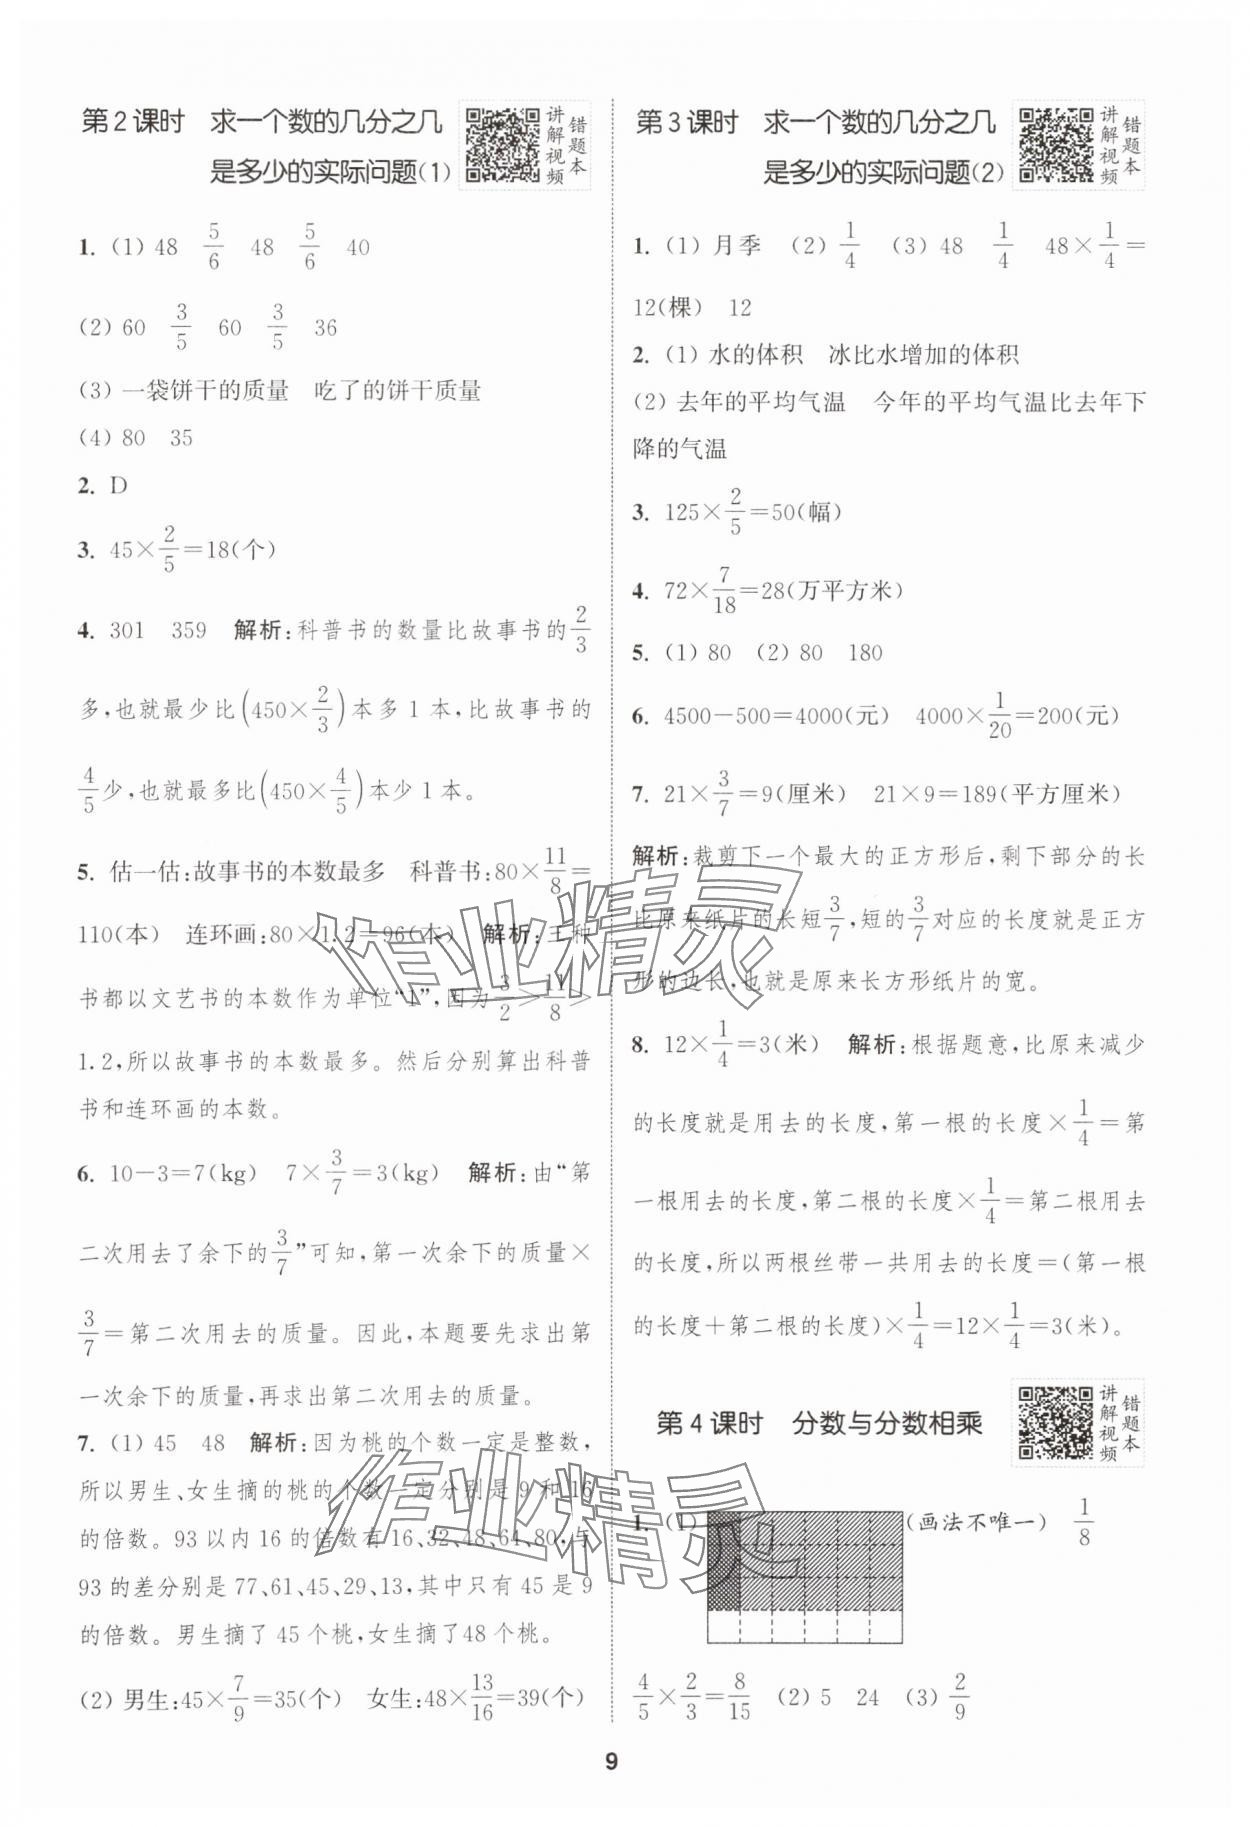 第2课时 求一个数的几分之几
是多少的实际问题(1)
讲解视频
错题本
1. (1) 48 5/6 48 5/6 40
(2) 60 3/5 60 3/5 36
(3) 一袋饼干的质量 吃了的饼干质量
(4) 80 35
2. D
3. 45×2/5=18(个)
4. 301 359 解析:科普书的数量比故事书的2/3
多,也就最少比(450×2/3)本多1本,比故事书的
4/5少,也就最多比(450×4/5)本少1本。
5. 估一估:故事书的本数最多 科普书:80×11/8=
110(本) 连环画:80×1.2=96(本) 解析:三种
书都以文艺书的本数作为单位“1”,因为3/2>11/8>
1.2,所以故事书的本数最多。然后分别算出科普
书和连环画的本数。
6. 10-3=7(kg) 7×3/7=3(kg) 解析:由“第
二次用去了余下的3/7”可知,第一次余下的质量×
3/7=第二次用去的质量。因此,本题要先求出第
一次余下的质量,再求出第二次用去的质量。
7. (1) 45 48 解析:因为桃的个数一定是整数,
所以男生、女生摘的桃的个数一定分别是9和16
的倍数。93以内16的倍数有16、32、48、64、80,与
93的差分别是77、61、45、29、13,其中只有45是9
的倍数。男生摘了45个桃,女生摘了48个桃。
(2) 男生:45×7/9=35(个) 女生:48×13/16=39(个)
第3课时 求一个数的几分之几
是多少的实际问题(2)
讲解视频
错题本
1. (1) 月季 (2) 1/4 (3) 48 1/4 48×1/4=
12(棵) 12
2. (1) 水的体积 冰比水增加的体积
(2) 去年的平均气温 今年的平均气温比去年下
降的气温
3. 125×2/5=50(幅)
4. 72×7/18=28(万平方米)
5. (1) 80 (2) 80 180
6. 4500-500=4000(元) 4000×1/20=200(元)
7. 21×3/7=9(厘米) 21×9=189(平方厘米)
解析:裁剪下一个最大的正方形后,剩下部分的长
比原来纸片的长短3/7,短的3/7对应的长度就是正方
形的边长,也就是原来长方形纸片的宽。
8. 12×1/4=3(米) 解析:根据题意,比原来减少
的长度就是用去的长度,第一根的长度×1/4=第
一根用去的长度,第二根的长度×1/4=第二根用去
的长度,所以两根丝带一共用去的长度=(第一根
的长度+第二根的长度)×1/4=12×1/4=3(米)。
第4课时 分数与分数相乘
讲解视频
错题本
1. (1) (画法不唯一) 1/8
4/5×2/3=8/15 (2) 5 24 (3) 2/9
作业精灵
作业精灵
9